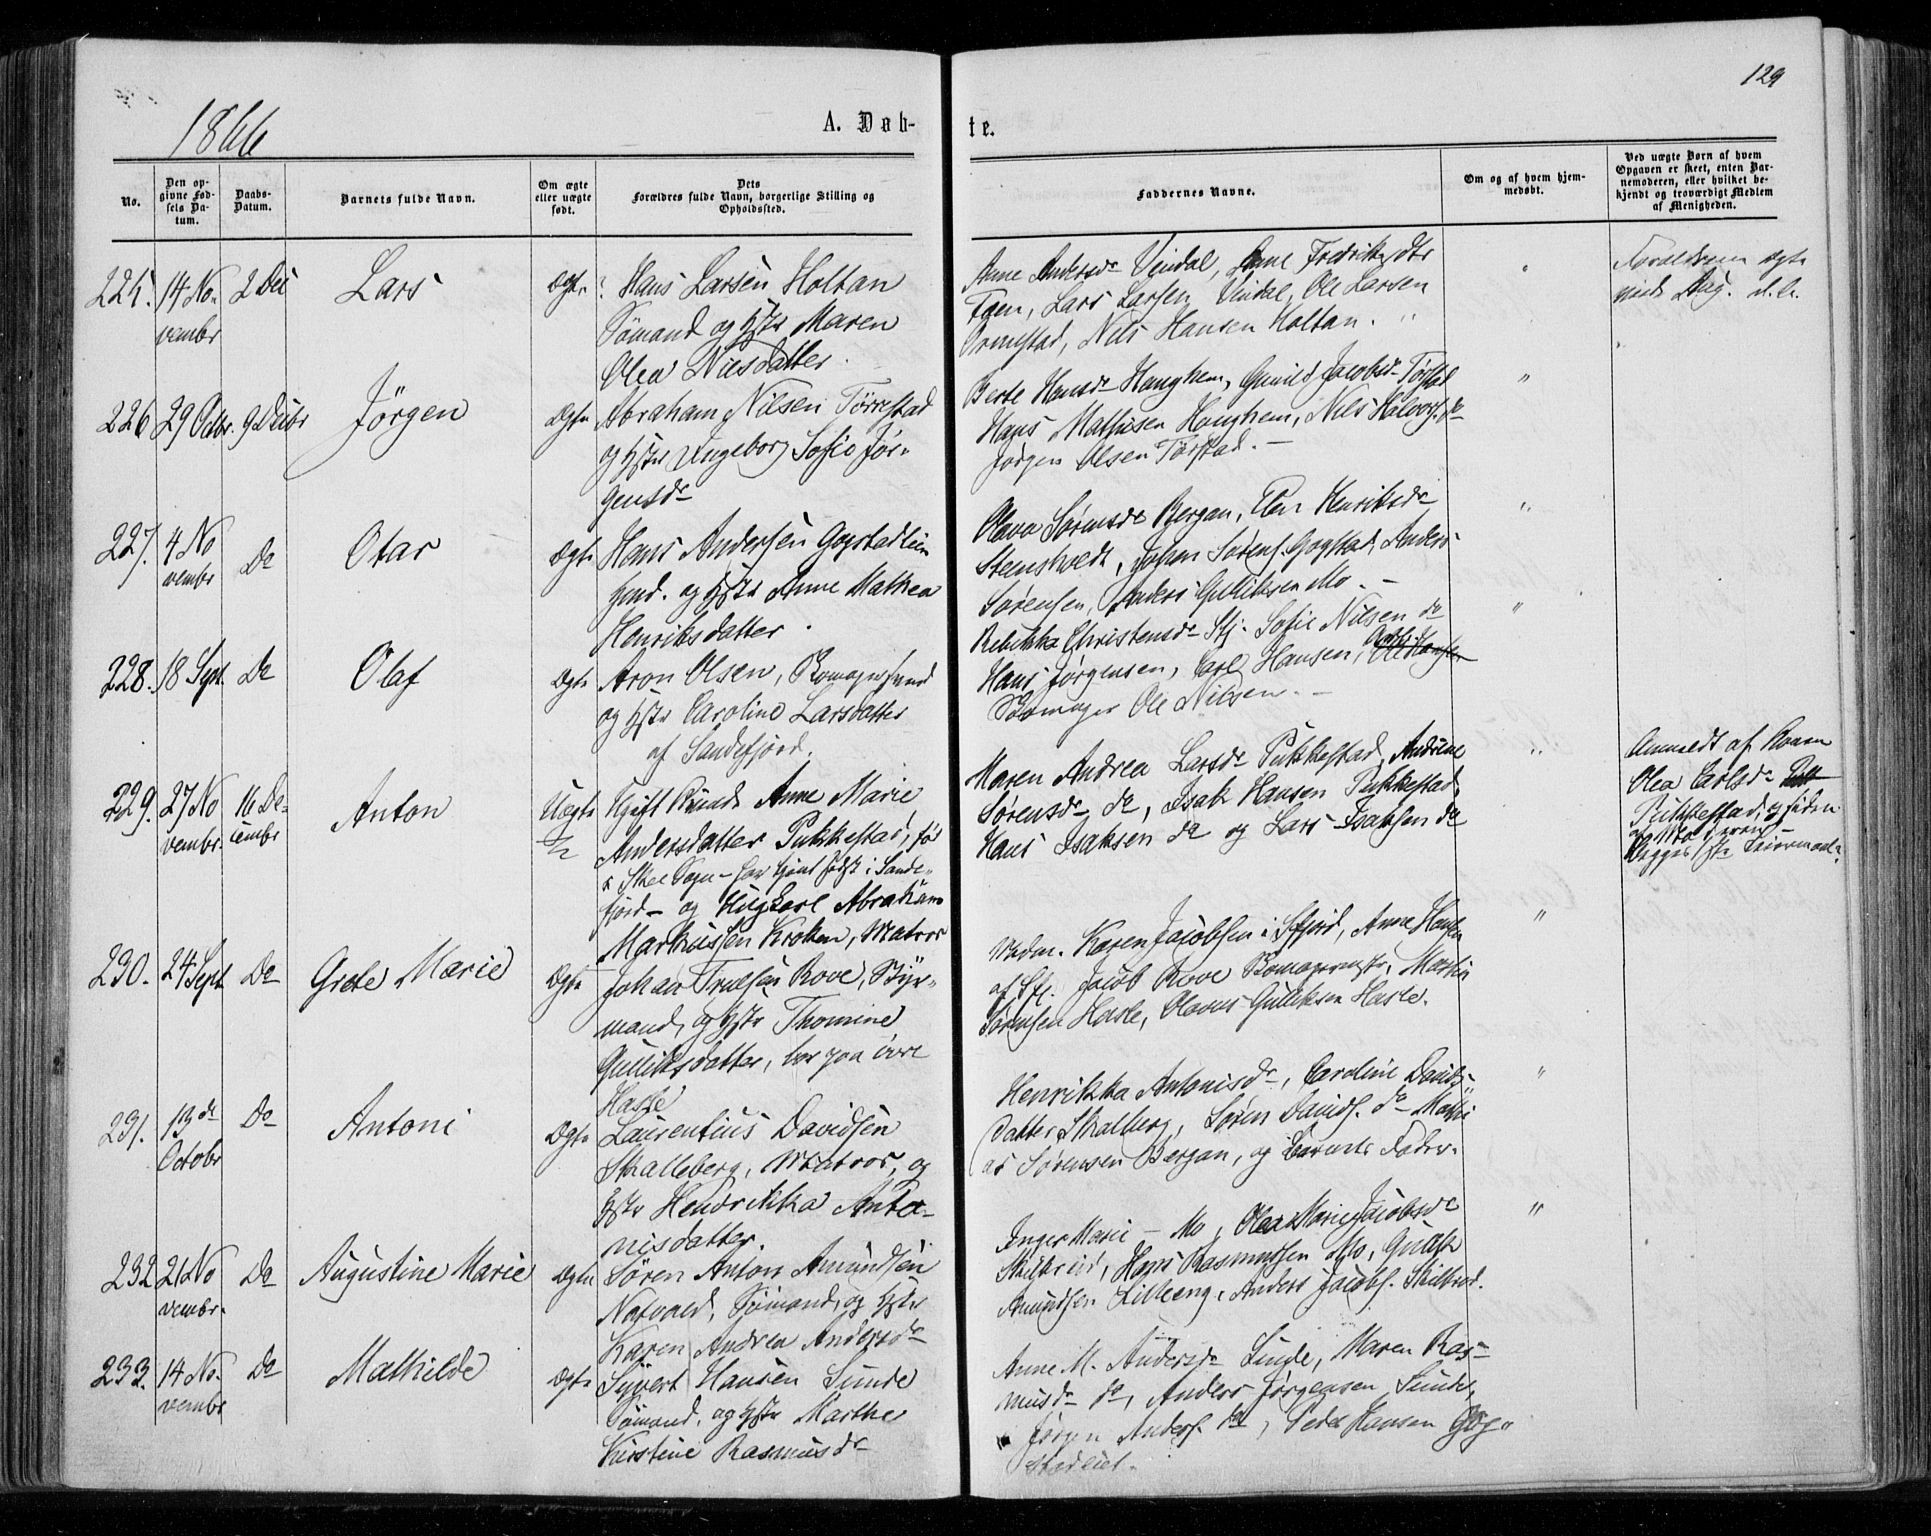 129
1866
A. Døb-
te.
No.
Den op-
givne Fød-
sels Da-
tum.
Daabs-
Datum.
Barnets fulde Navn.
Om ægte
eller uægte
født.
Dets
Forældres fulde Navn, borgerlige Stilling og
Opholdssted.
Faddernes Navne.
Om og af hvem hjem-
medøbt.
Ved uægte Børn af hvem
Opgaven er skeet, enten Bar-
nemoderen, eller hvilket be-
kjendt og troværdigt Medlem
af Menigheden.
225. 14 No-
vembr
2 Dec
Lars
Ægte
Hans Larsen Holtan
Sømand og Hstr Maren
Olea Nilsdatter.
Anne Andersdr Vindal, Anne Fredriksdtr
Fæn, Lars Larsen Vindal, Ole Larsen
Ormestad, Nils Hansen Holtan.
"
Forældrene ægte-
226 29 Octbr. 9 Decbr
Jörgen
Ægte
Abraham Nilsen Törrestad
og Hstr Ingeborg Sofie Jör-
gensdr
Berte Hansdr Haughem, Gunild Jacobsdr Törstad
Hans Mathisen Haughem, Nils Halvors. do
Jørgen Olsen Törstad. —
"
227. 4 No
vembr
Do
Otar
Ægte
Hans Andersen Gogstadlein
hend. og Hstr Anne Mathea
Henriksdatter.
Olava Sørensdr Bergan, Elen Henriksdr
Steensholdt, Johan Sørens. Gogstad, Anders
Sørensen, Anders Gulliksen Mo. —
"
228. 18 Sept. Do
Olaf
Ægte
Aron Olsen, Bomagersvend
og Hstr Caroline Larsdatter
af Sandefjord.
Rebekka Christensdr Sfj. Sofie Nilsen do
Hans Jørgensen, Carl Hansen,
Bomager Ole Nilsen. —
"
229. 27 No
vembr.
16 De-
cembr
Anton
Uægte
1/2
Ugift Kvinde Anne Marie
Andersdatter Pukkestad, før
i Skee Sogn — har tjent sidst i Sande-
fjord — og Ungkarl Abraham
Markussen Kroken, Matros
Maren Andrea Larsdr Pukkestad, Andrine
Sørensdr do, Isak Hansen Pukkestad,
Hans Isaksen do og Lars Isaksen do
"
Anmeldt af Konen
Olea Carlsdr
Pukkestad, og siden
af Moderen —
Begges 1ste Leiermaal.
230. 24 Sept Do
Grete Marie
Ægte
Johan Truelsen Rove, Styr-
mand, og Hstr Thomine
Gulliksdatter, bor paa övre
Hasle
Madm. Karen Jacobsen i Sfjord, Anne Hansen
af Sfj. Jacob Rove Bomagermstr, Martin
Sørensen Hasle, Olavus Gulliksen Hasle.
"
231. 13de
Octobr
Do
Antoni
Ægte
Laurentius Davidsen
Skalleberg, Matros, og
Hstr Hendrikka Anto-
nisdatter.
Henrikka Antonisdr, Caroline Davids-
datter Skalberg, Sören Davids. do Mathi
as Sørensen Bergan, og Barnets Fader.
"
232 21 No
vembr.
Do
Augustine Marie
Ægte
Sören Anton Amundsen
Natvald, Sømand, og Hstr
Karen Andrea Andersdr
Inger Marie — Mo, Olea Marie Jacobsdr
Skiltreid, Hans Rasmussen Mo,
Amundsen Lilleeng, Anders Jacobs. Skiltred.
"
233. 14 No-
vembr
Do
Mathilde
Ægte
Syvert Hansen Sunde
Sømand, og Hstr Marthe
Kirstine Rasmusdr
Anne M. Andersdr Sunde, Maren Ras-
musdr do, Anders Jørgensen Sunde,
Jørgen Anders. do, Peder Hansen Gog-
stadleiet.